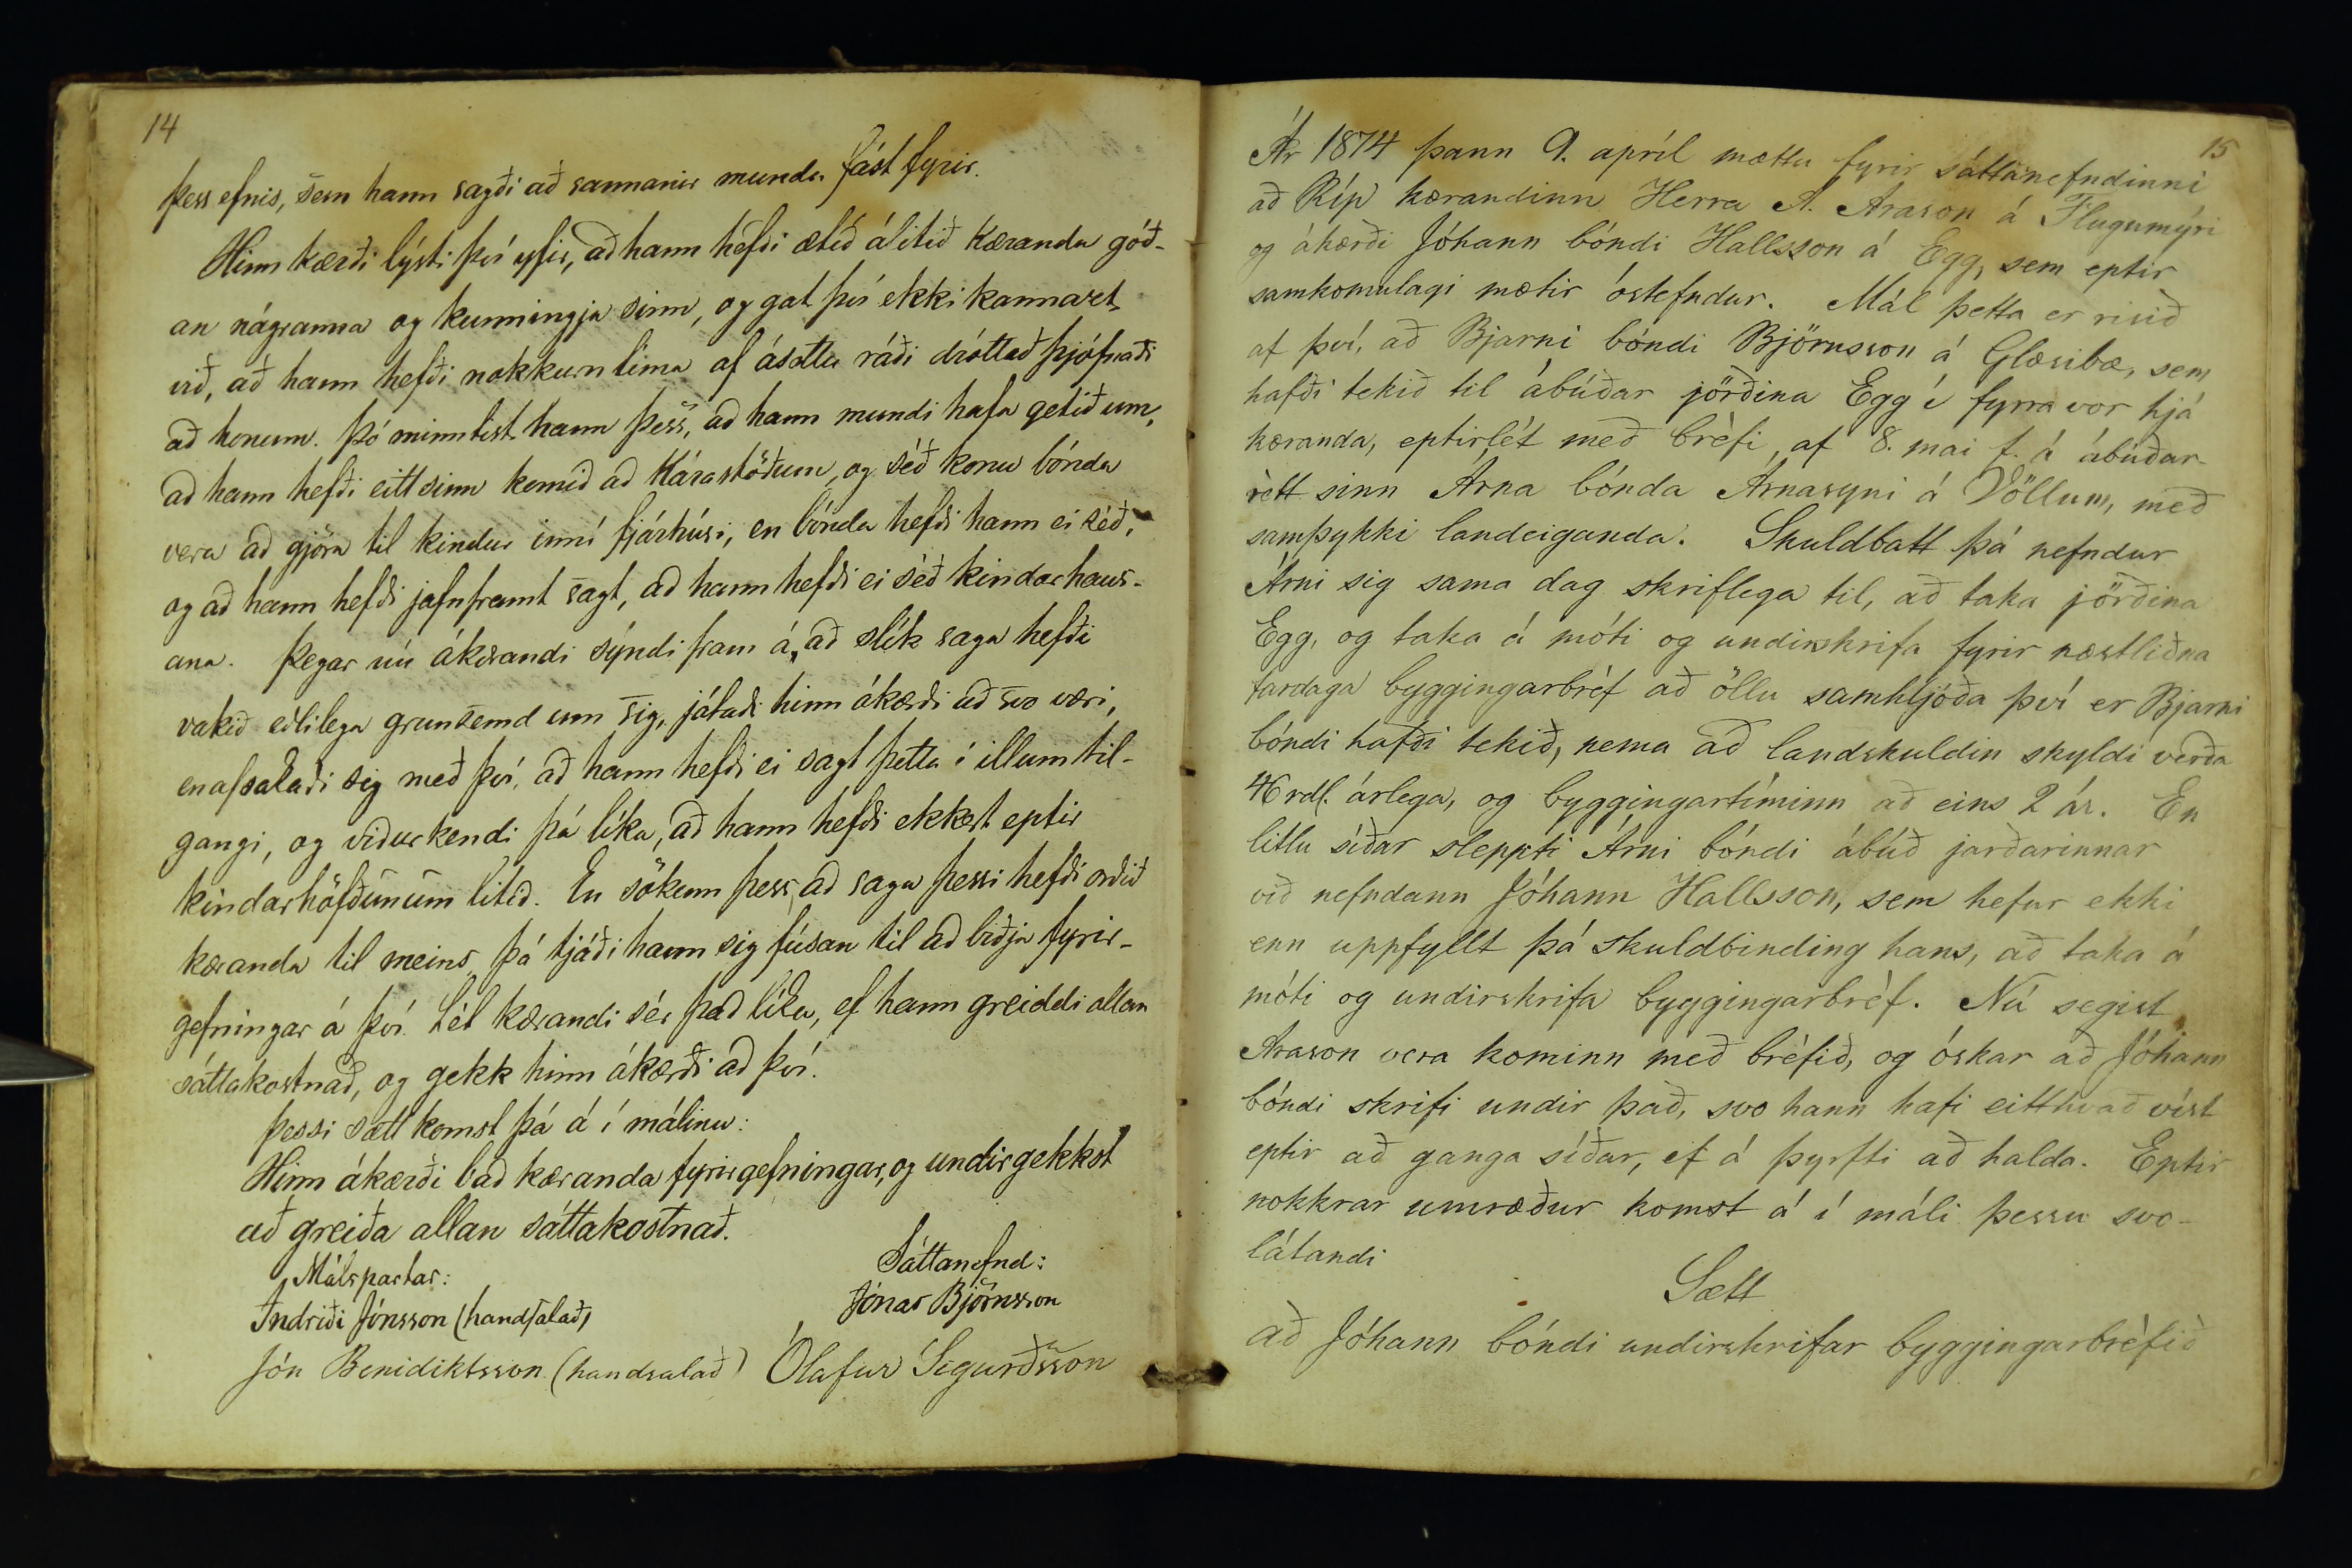 14
þess efnis, sem hann sagði að sannanir mundu fást fyrir.
Hinn kærði lýsti því yfir, að hann hefði ætíð álitið kæranda góð-
an nágranna og kunningja sinn, og gat því ekki kannazt
við, að hann hefði nokkurn tíma af ásettu ráði dróttað þjófnaði
að honum. Þó minntist hann þess, að hann mundi hafa getið um,
að hann hefði eitt sinn komið að Kárastöðum, og séð konu bónda
vera að gjöra til kindur inní fjárhúsi, en bónda hefði hann ei séð,
og að hann hefði jafnframt sagt, að hann hefði ei séð kindarhaus-
ana. Þegar nú ákærandi sýndi fram á, að slík saga hefði
vakið eðlilega grunsemd um sig, játaði hinn ákærði að svo væri,
en afsakaði sig með því, að hann hefði ei sagt þetta í illum til-
gangi, og viðurkendi þá líka, að hann hefði ekkert eptir
kindarhöfðunum litið. En sökum þess, að saga þessi hefði orðið
kæranda til meins þá tjáði hann sig fúsan til að biðja fyrir-
gefningar á því. Lét kærandi sér það líka, ef hann greiddi allan
sáttakostnað, og gekk hinn ákærði að því.
Þessi sætt komst þá á í málinu:
Hinn ákærði bað kæranda fyrirgefningar, og undirgekkst
að greiða allan sáttakostnað.
Málspartar:
Sáttanefnd:
Indriði Jónsson (handsalað)
Jónas Björnsson
Jón Benidiktsson (handsalað)
Ólafur Sigurðsson
15
Ár 1874 þann 9. apríl mættu fyrir sáttanefndinni
að Ríp kærandinn Herra A. Arason á Flugumýri
og ákærði Jóhann bóndi Hallsson á Egg, sem eptir
samkomulagi mætir óstefndur. Mál þetta er risið
af því, að Bjarni bóndi Björnsson á Glæsibæ, sem
hafði tekið til ábúðar jörðina Egg í fyrra vor hjá
kæranda, eptirlét með bréfi, af 8. mai f. á ábúðar-
rètt sinn Árna bónda Árnasyni á Völlum, með
samþykki landeiganda. Skuldbatt þá nefndur
Árni sig sama dag skriflega til, að taka jörðina
Egg, og taka á móti og undirskrifa fyrir næstliðna
fardaga byggingarbréf að öllu samhljóða því er Bjarni
bóndi hafði tekið, nema að landskuldin skyldi verða
46 rdl. árlega, og byggingartíminn að eins 2 ár. En
litlu síðar sleppti Árni bóndi ábúð jarðarinnar
við nefndann Jóhann Hallsson, sem hefur ekki
enn uppfyllt þá skuldbinding hans, að taka á
móti og undirskrifa byggingarbréf. Nú segist
Arason vera kominn með bréfið, og óskar að Jóhann
bóndi skrifi undir það, svo hann hafi eitthvað víst
eptir að ganga síðar, ef á þyrfti að halda. Eptir
nokkrar umræður komst á í máli þessu svo-
látandi
Sætt
að Jóhann bóndi undirskrifar byggingarbréfið